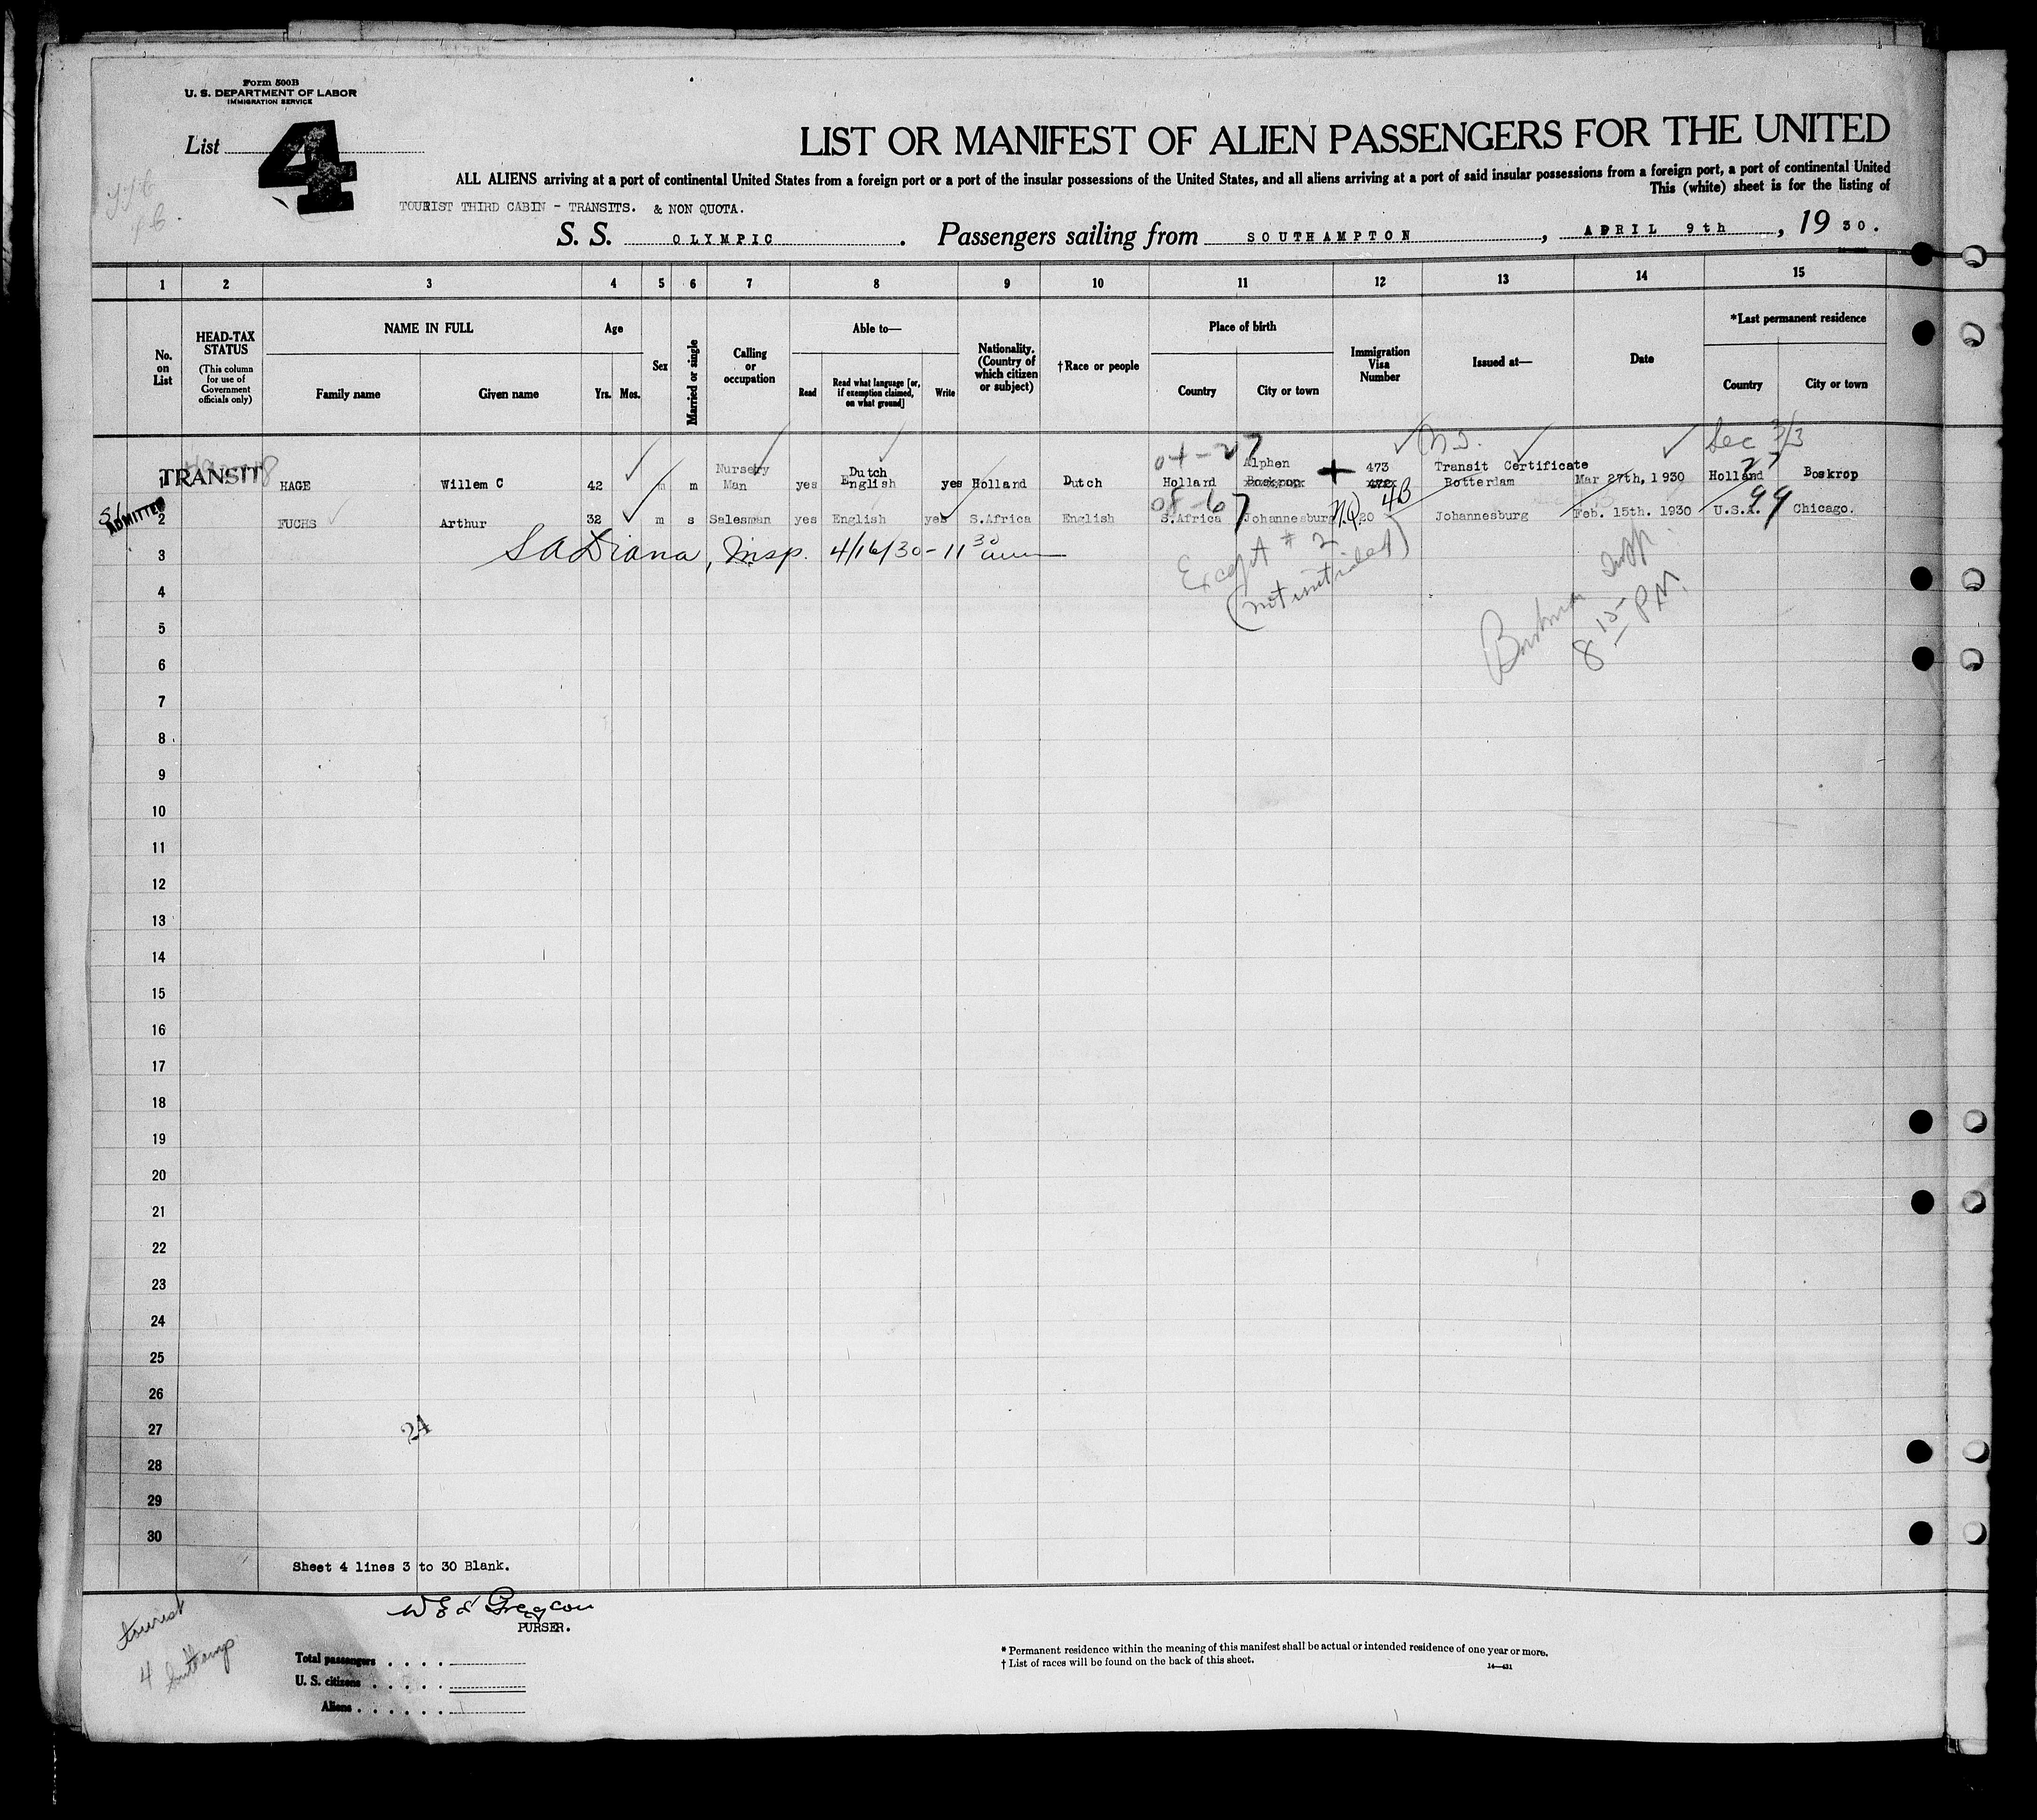 Form 500B
U. S. DEPARTMENT OF LABOR
IMMIGRATION SERVICE
List 4
LIST OR MANIFEST OF ALIEN PASSENGERS FOR THE UNITED
ALL ALIENS arriving at a port of continental United States from a foreign port or a port of the insular possessions of the United States, and all aliens arriving at a port of said insular possessions from a foreign port, a port of continental United
This (white) sheet is for the listing of
TOURIST THIRD CABIN - TRANSITS. & NON QUOTA.
S. S. OLYMPIC . Passengers sailing from SOUTHAMPTON , APRIL 9th , 19 30.
1 2 3 4 5 6 7 8 9 10 11 12 13 14 15
No. on List
HEAD-TAX STATUS
(This column for use of Government officials only)
NAME IN FULL
Family name Given name
Age
Yrs. Mos.
Sex
Married or single
Calling or occupation
Able to—
Read Read what language [or, if exemption claimed, on what ground] Write
Nationality. (Country of which citizen or subject)
†Race or people
Place of birth
Country City or town
Immigration Visa Number
Issued at—
Date
*Last permanent residence
Country City or town
Sec 3/3
04-27
TRANSIT
1 HAGE Willem C 42 m m Nursery Man yes Dutch English yes Holland Dutch Holland Alphen Boskrop 473 472 Transit Certificate Rotterdam Mar 27th, 1930 Holland 27 Boskrop
08-67 NQ 4B 99
ADMITTED
2 FUCHS Arthur 32 m s Salesman yes English yes S.Africa English S.Africa Johannesburg 20 Johannesburg Feb. 15th. 1930 U.S.A. Chicago.
3 SADiana, Insp. 4/16/30 - 11 30 am
Except # 2
(not initialed)
Insp.
8 15 P.M.
4
5
6
7
8
9
10
11
12
13
14
15
16
17
18
19
20
21
22
23
24
25
26
27
24
28
29
30
Sheet 4 lines 3 to 30 Blank.
PURSER.
tourist
4 Southamp
Total passengers . . . .
U. S. citizens . . . . .
Aliens . . . . . .
* Permanent residence within the meaning of this manifest shall be actual or intended residence of one year or more.
† List of races will be found on the back of this sheet.
14—431